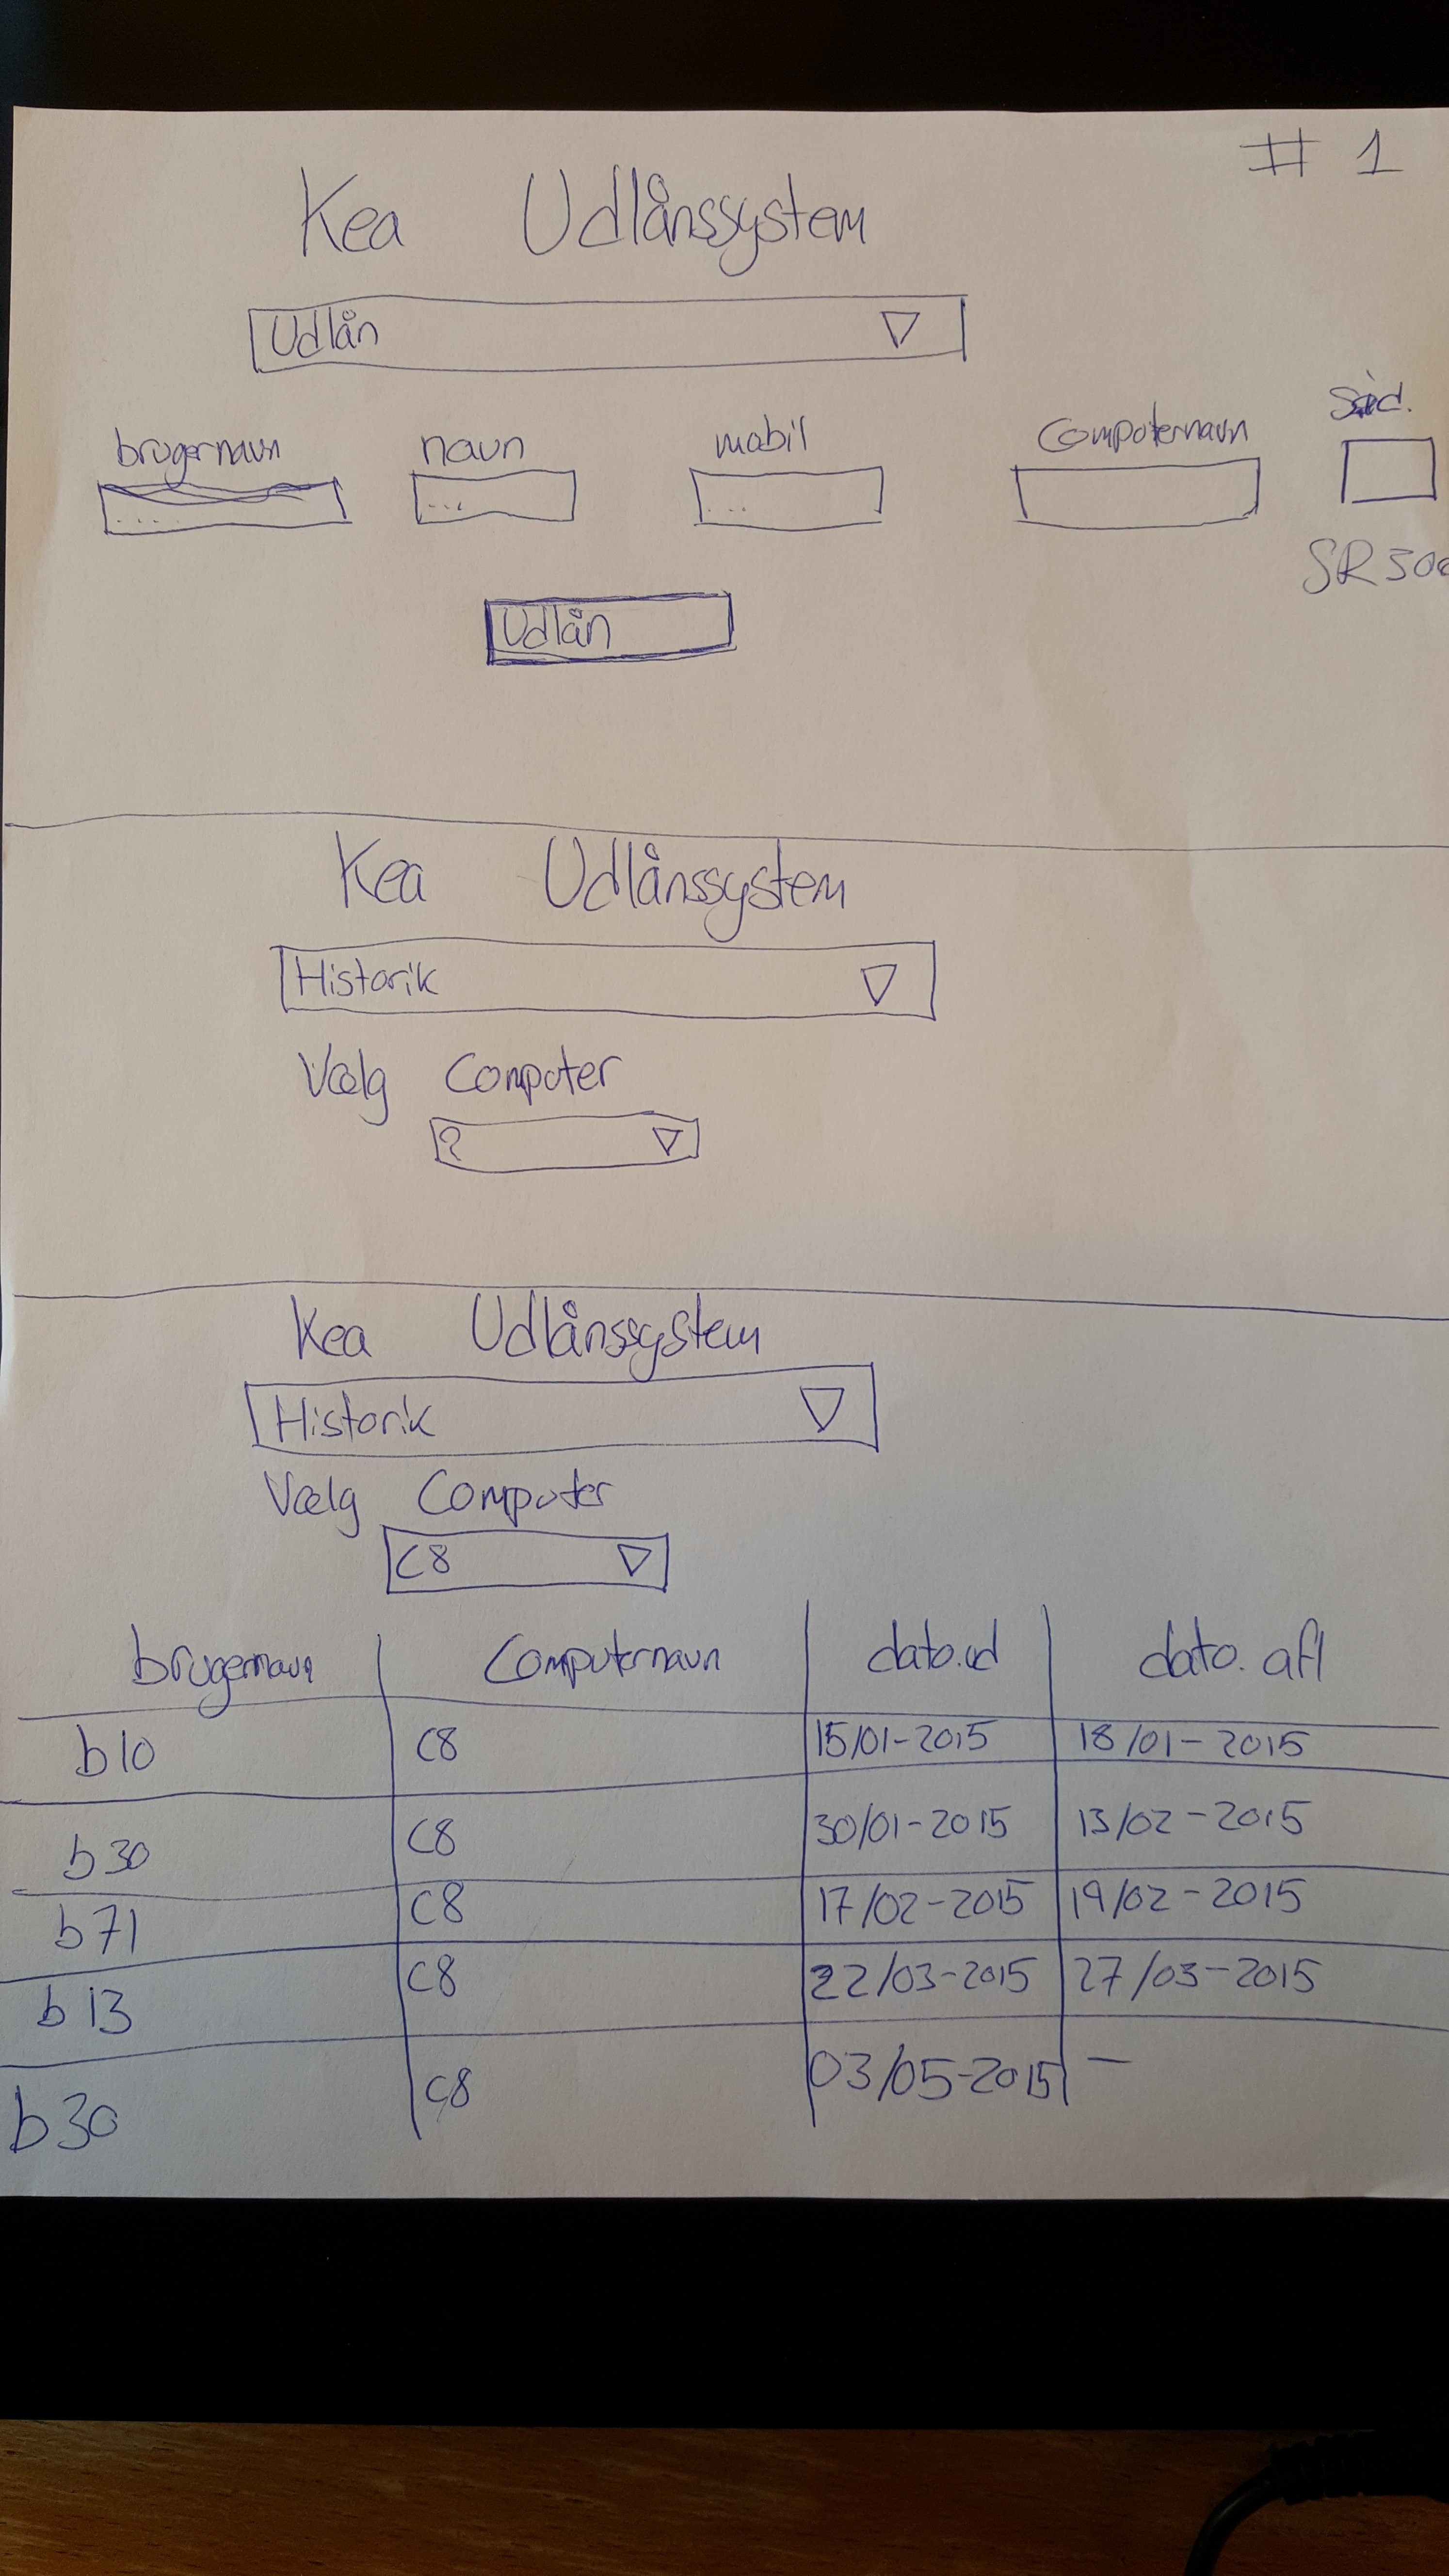 # 1
Kea Udlånssystem
Udlån
brugernavn navn mobil Computernavn
... ... ...
Udlån
Kea Udlånssystem
Historik
Vælg Computer
?
Kea Udlånssystem
Historik
Vælg Computer
C8
brugernavn Computernavn dato.ud dato.afl
b10 C8 15/01-2015 18/01-2015
b30 C8 30/01-2015 13/02-2015
b71 C8 17/02-2015 19/02-2015
b13 C8 22/03-2015 27/03-2015
b30 C8 03/05-2015 -